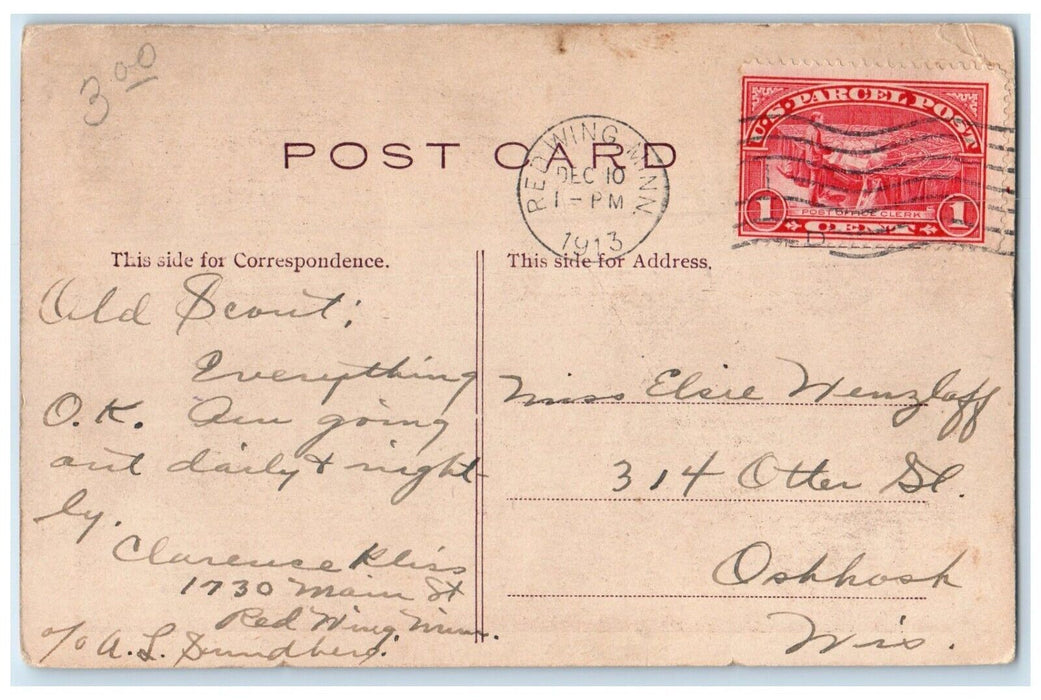 3.00
POST CARD
RED WING MINN.
DEC 10
1 - PM
1913
U.S. PARCEL POST
POST OFFICE CLERK
1 CENT 1
This side for Correspondence.
This side for Address.
Old Scout;
Everything
O.K. Am going
out daily & night-
ly.
Clarence
1730 Main St
Red Wing, Minn.
c/o A. L. Sundberg.
Miss Elsie Wenzlaff
314 Otter St.
Oshkosh
Wis.